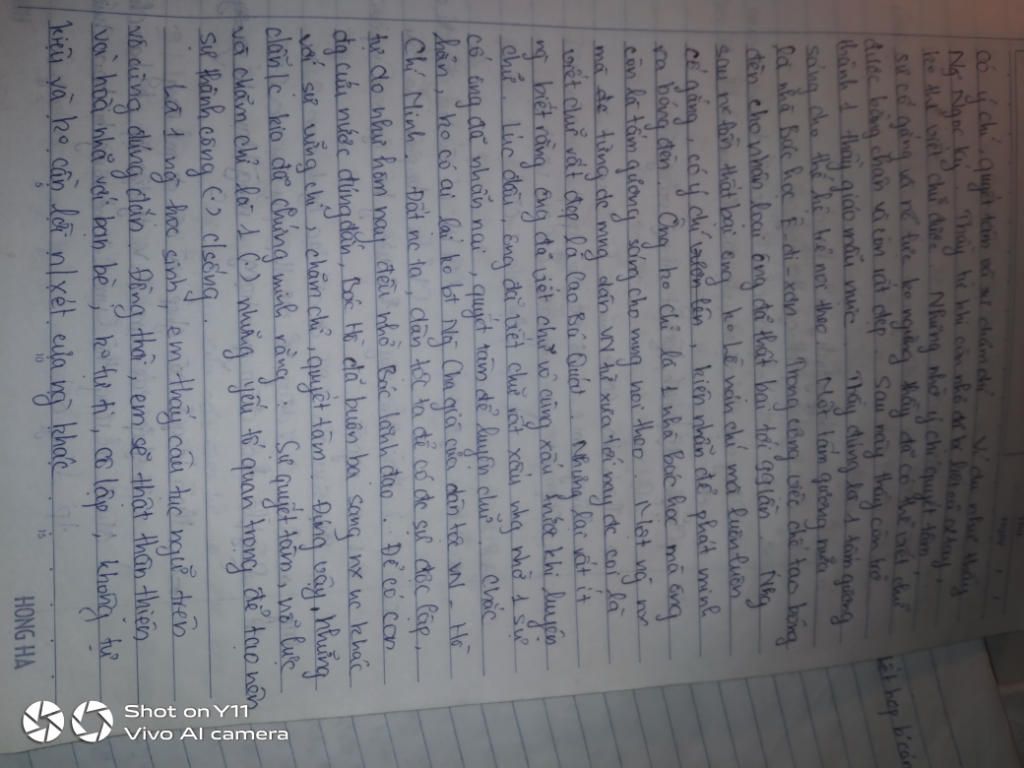 Thứ
Ngày
có ý chí, quyết tâm và sự chăm chỉ. Ví dụ như thầy
Ng Ngọc Ký. Thầy bị khi còn nhỏ đã bị liệt cả 2 tay,
ko thể viết chữ được. Nhưng nhờ ý chí quyết tâm,
sự cố gắng và nỗ lực ko ngừng thầy đã có thể viết chữ
được bằng chân và còn rất đẹp. Sau này thầy còn trở
thành 1 thầy giáo mẫu mực. Thầy đúng là 1 tấm gương
sáng cho thế hệ trẻ noi theo. Một tấm gương nữa
là nhà Bác học Ê đi-xơn. Trong công việc chế tạo bóng
đèn cho nhân loại ông đã thất bại tới gần lần. Nhg
sau nc lần thất bại ông ko hề nản chí mà luôn luôn
cố gắng, có ý chí vươn lên, kiên nhẫn để phát minh
ra bóng đèn. Ông ko chỉ là 1 nhà Bác học mà ông
còn là tấm gương sáng cho mng noi theo. Một ng nx
mà đc tiếng đc mng dân VN từ xưa tới nay đc coi là
viết chữ rất đẹp là Cao Bá Quát. Nhưng lại rất ít
ng biết rằng ông đã viết chữ vô cùng xấu trước khi luyện
chữ. Lúc đầu, ông đã viết chữ rất xấu nhg nhờ 1 sự
cố ông đã nhẫn nại, quyết tâm để luyện chữ. Chắc
hẳn, ko có ai lại ko bt Ng Cha già của dân tộc VN - Hồ
Chí Minh. Đất nc ta, dân tộc ta để có đc sự độc lập,
tự do như hôm nay đều nhờ Bác lãnh đạo. Để có con
đg cứu nước đúng đắn, Bác Hồ đã buôn ba sang nx nc khác
với sự vững chí, chăm chỉ, quyết tâm. Đúng vậy, những
dẫn c kia đã chứng minh rằng: Sự quyết tâm, nỗ lực
và chăm chỉ là 1 (.) những yếu tố quan trọng để tạo nên
sự thành công (.) c/sống.
Là 1 ng học sinh, em thấy câu tục ngữ trên
vô cùng đúng đắn. Đồng thời, em sẽ thật thân thiện
và hoà nhã với bạn bè, ko tự ti, cô lập, không tự
kiêu và ko cần lời n/xét của ng khác
5
10
15
HONG HA
Shot on Y11
Vivo AI camera